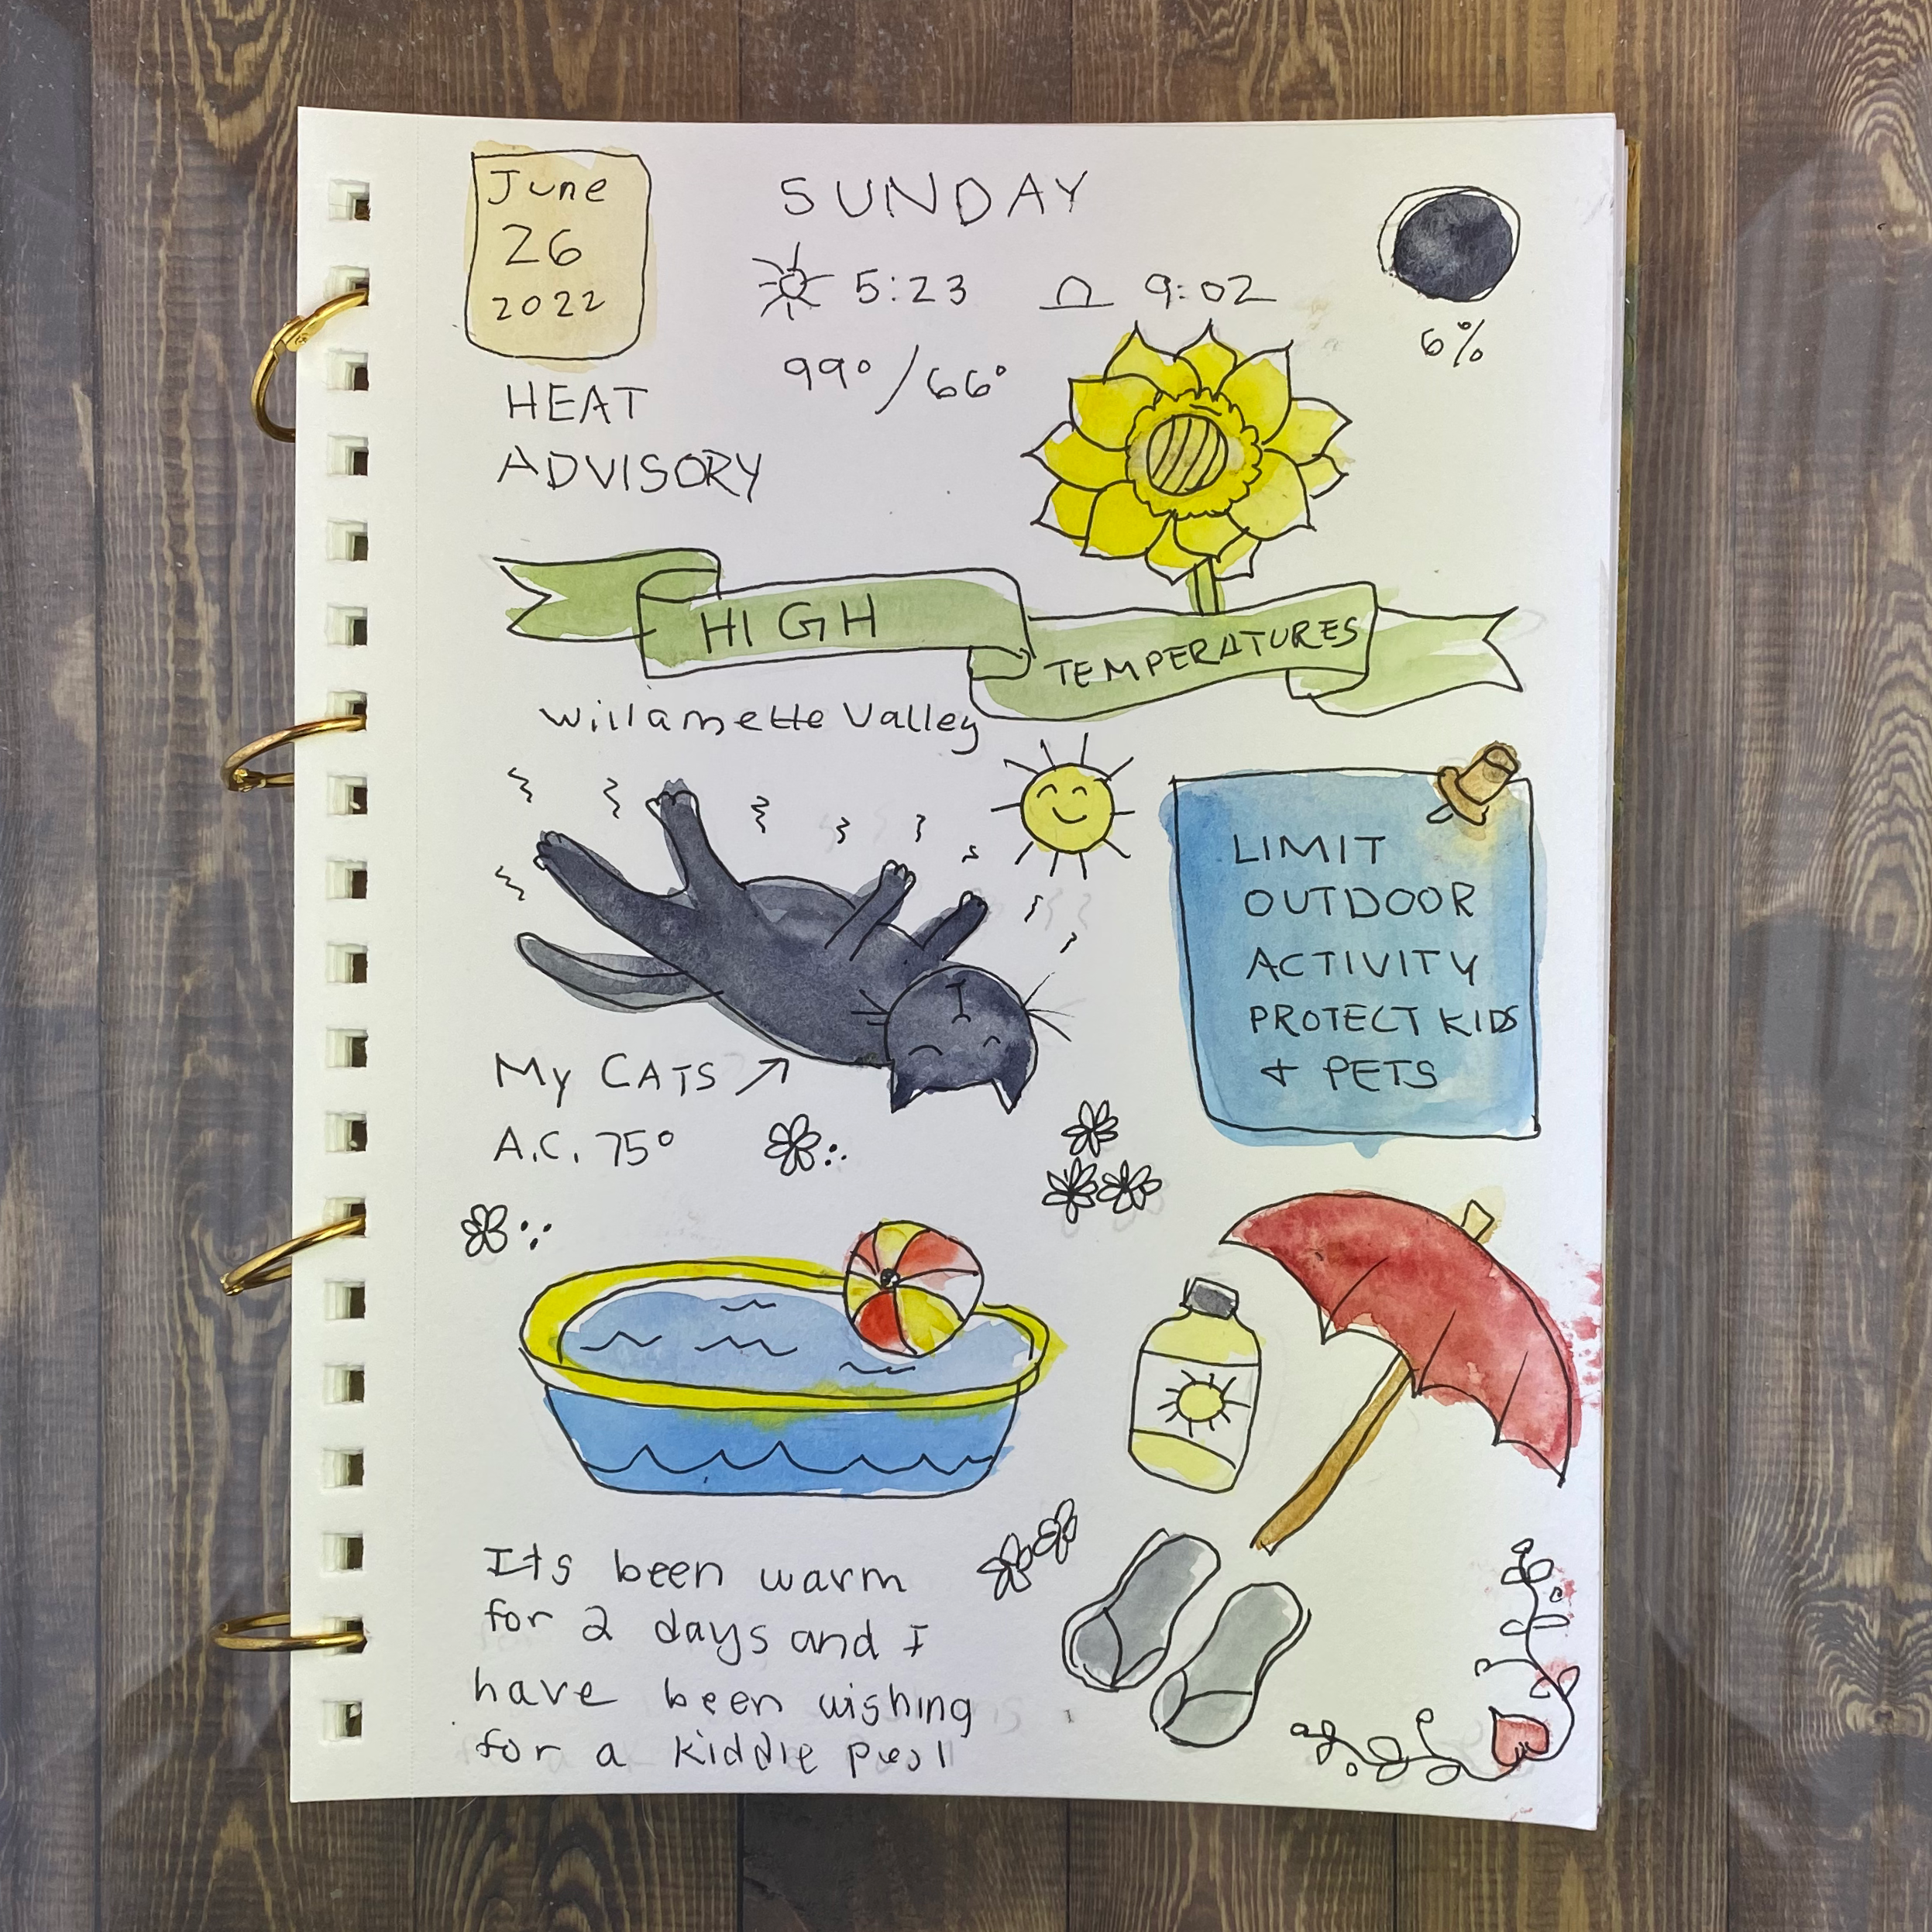 June
26
2022
SUNDAY
5:23 9:02
99°/66°
6%
HEAT
ADVISORY
HIGH
TEMPERATURES
Willamette Valley
LIMIT
OUTDOOR
ACTIVITY
PROTECT KIDS
+ PETS
My CATS
A.C. 75°
Its been warm
for 2 days and I
have been wishing
for a kiddie pool